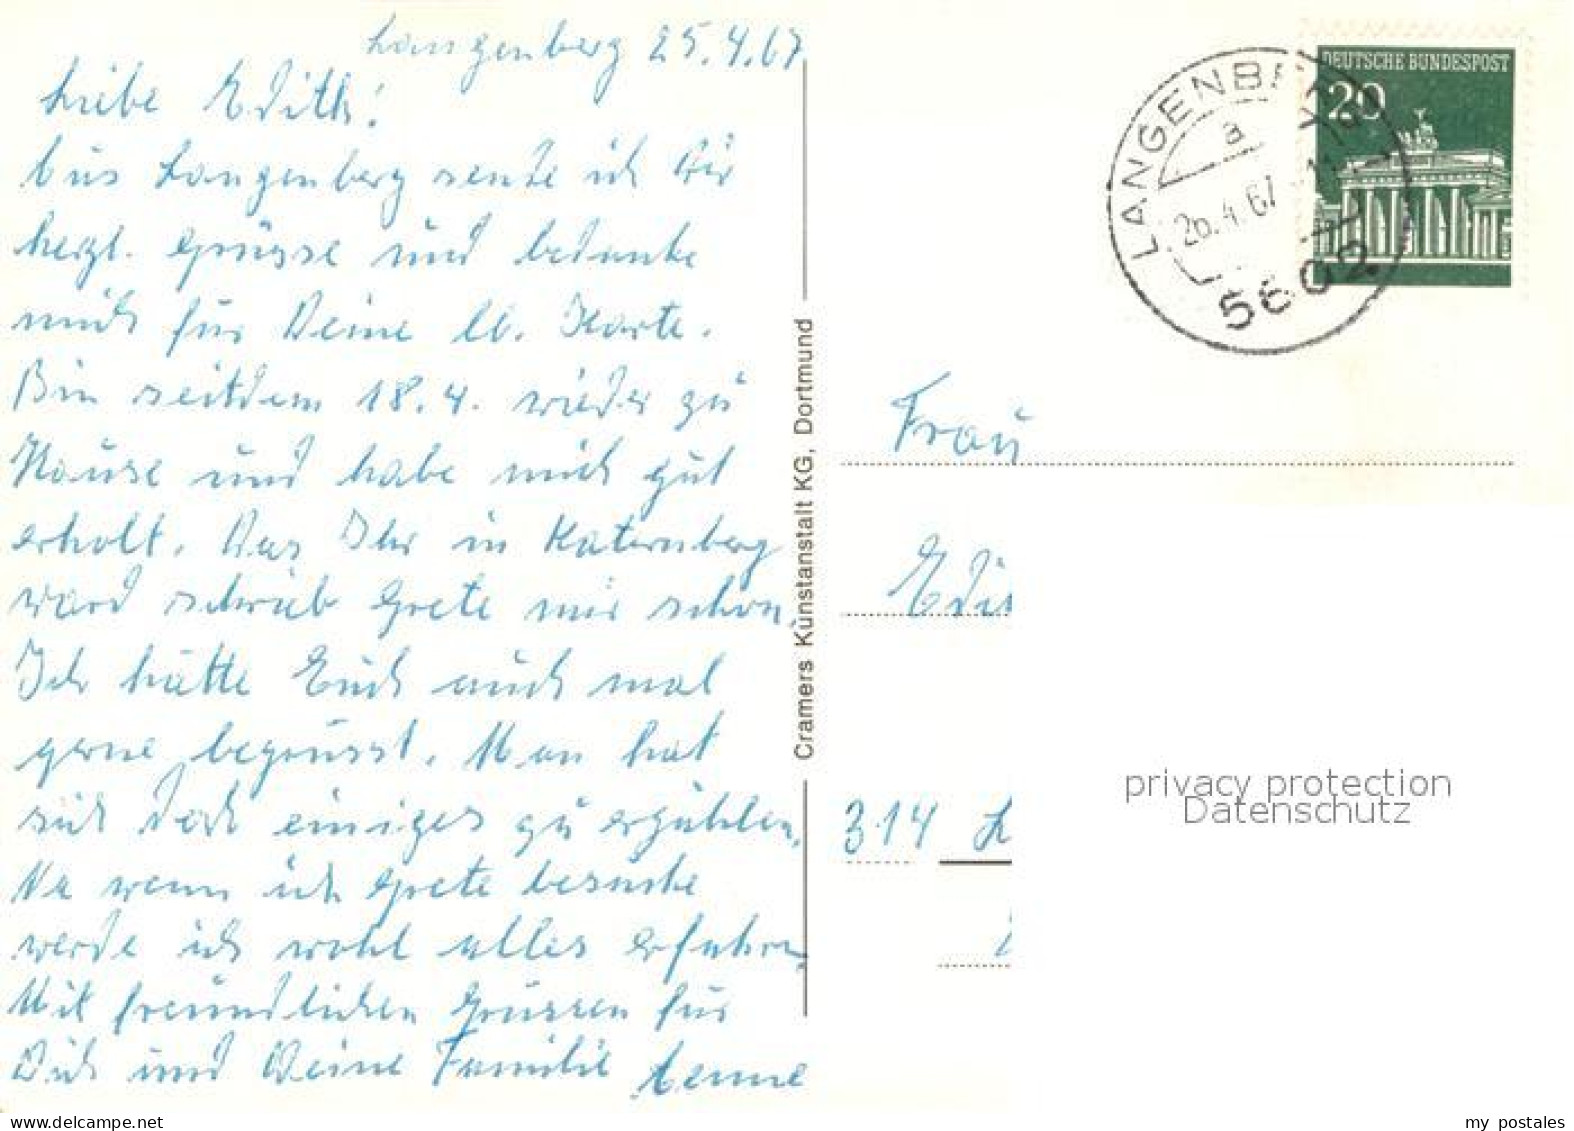 Langenberg 25.4.67
Liebe Edith!
Aus Langenberg sende ich Dir
herzl. Grüsse und bedanke
mich für Deine lb. Karte.
Bin seitdem 18.4. wieder zu
Hause und habe mich gut
erholt. Das Ihr in Katernberg
ward schrieb Grete mir schon.
Ich hätte Euch auch mal
gerne begrüsst. Man hat
sich doch einiges zu erzählen.
Na wenn ich Grete besuche
werde ich wohl alles erfahren.
Mit freundlichen Grüssen für
Dich und Deine Familie Aenne
Cramers Kunstanstalt KG, Dortmund
LANGENBE
a
26.4.67
5602
DEUTSCHE BUNDESPOST
20
Frau
Edi
314 L
privacy protection
Datenschutz
my postales